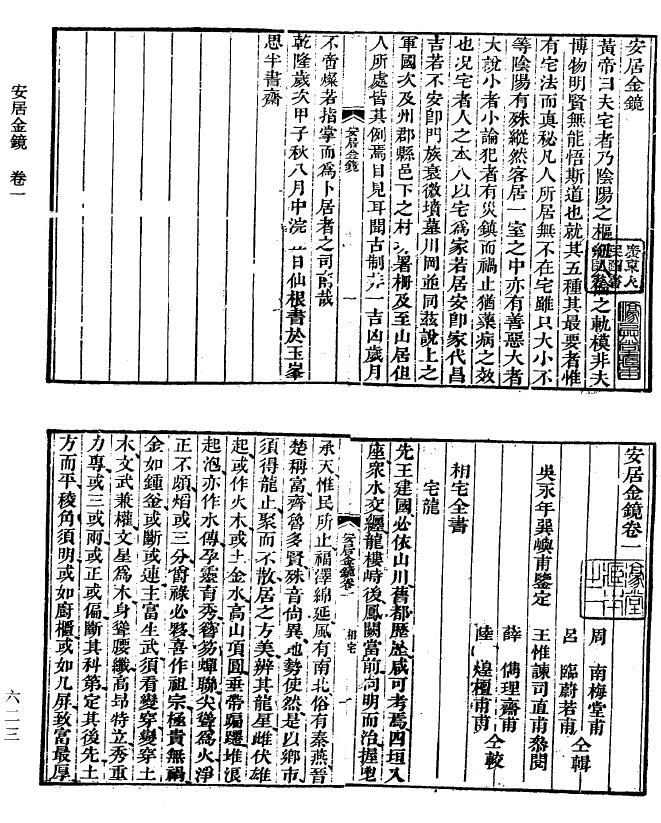 安居金鏡
黃帝曰夫宅者乃陰陽之樞紐人之軌模非夫
博物明賢無能悟斯道也就其五種其最要者惟
有宅法而真秘凡人所居無不在宅雖只大小不
等陰陽有殊縱然客居一室之中亦有善惡大者
大說小者小論犯者有災鎮而禍止猶藥病之效
也况宅者人之本人以宅為家若居安即家代昌
吉若不安即門族衰微墳墓川岡並同茲說上之
軍國次及州郡縣邑下之村署柵及至山居但
人所處皆其例焉目見耳聞古制非一吉凶歲月
安居金鏡 一
不啻燦若指掌而為卜居者之司南哉
乾隆歲次甲子秋八月中浣日仙根書於玉峯
思半書齋
安居金鏡 卷一
安居金鏡卷一
周南梅堂甫
呂臨蔚若甫 仝輯
吳永年巽嶼甫鑒定
王惟諫司直甫叅閱
薛儁理齋甫
陸煌檀甫甫 仝較
相宅全書
宅龍
先王建國必依山川舊都歷歷咸可考焉四垣入
座眾水交纏龍樓峙後鳳闕當前向明而治握乾
安居金鏡卷一 相宅 一
承天惟民所止福澤綿延風有南北俗有秦燕晉
楚稱富齊魯多賢殊音尚異地勢使然是以鄉市
須得龍止聚而不散居之方美辨其龍星雌伏雄
起或作火木或土金水高山頂圓垂帶蹁躚堆浪
起泡亦作水傳孕靈育秀簪笏蟬聯尖聳為火淨
正不頗熖或三分爵祿必夥喜作祖宗極貴無禍
金如鍾釜或斷或連主富生武須看變穿變穿土
木文武兼權文星為木身聳腰纖高昂特立秀重
力專或三或兩或正或偏斷其科第定其後先土
方而平稜角須明或如廚櫃或如几屏致富最厚
六二三